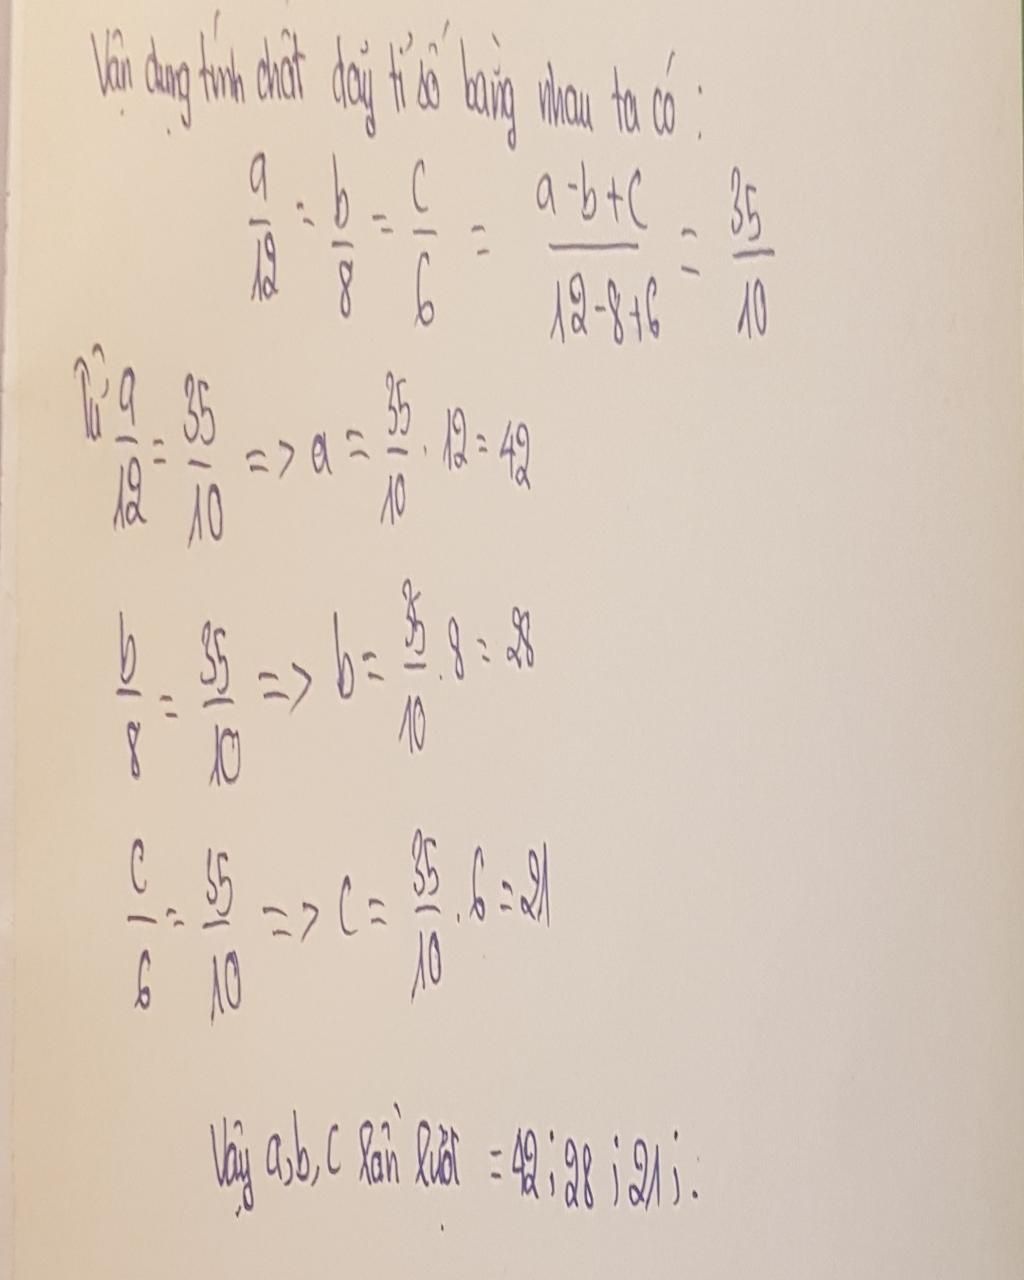 Vận dụng tính chất dãy tỉ số bằng nhau ta có :
a/12 = b/8 = c/6 = a-b+c/12-8+6 = 35/10
Từ a/12 = 35/10 => a = 35/10 . 12 = 42
b/8 = 35/10 => b = 35/10 . 8 = 28
c/6 = 35/10 => c = 35/10 . 6 = 21
Vậy a,b,c lần lượt = 42 ; 28 ; 21 ; .